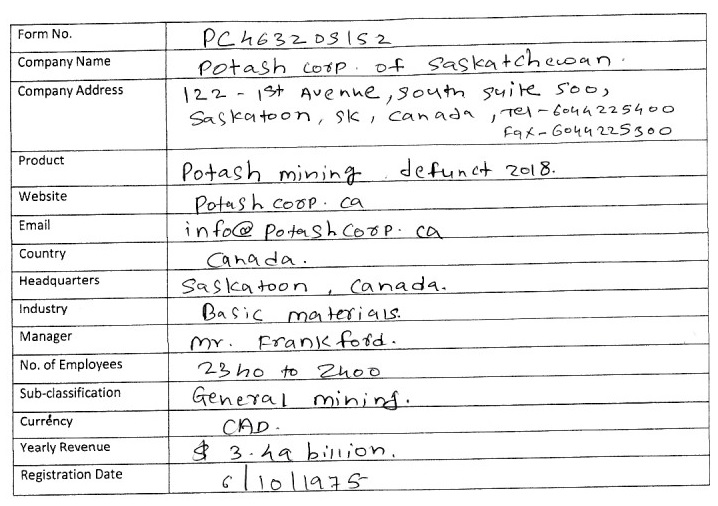 Form No. PC463203152
Company Name Potash corp. of Saskatchewan.
Company Address 122 - 1st Avenue, south suite 500,
Saskatoon, SK, Canada, Tel - 6044225400
Fax - 6044225300
Product Potash mining. defunct 2018.
Website Potash corp. ca
Email info@ Potash corp. ca
Country Canada.
Headquarters Saskatoon, Canada.
Industry Basic materials.
Manager Mr. Frank ford.
No. of Employees 2340 to 2400
Sub-classification General mining.
Currency CAD.
Yearly Revenue $ 3.49 billion.
Registration Date 6/10/1975